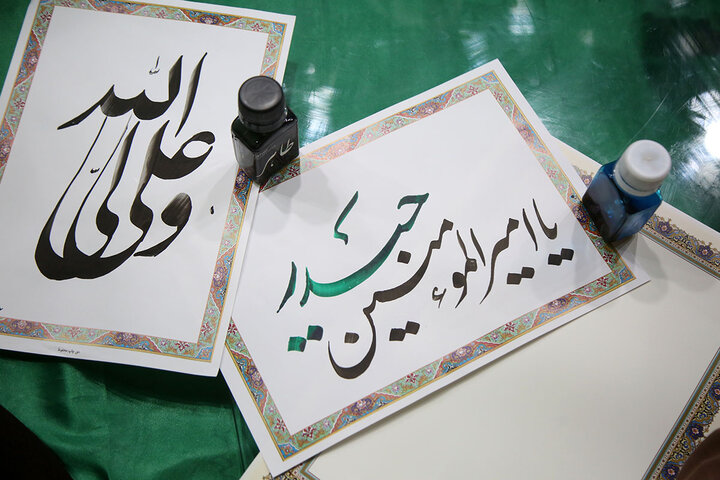 علی ولی الله
یا امیر المؤمنین حیدر
طاهر